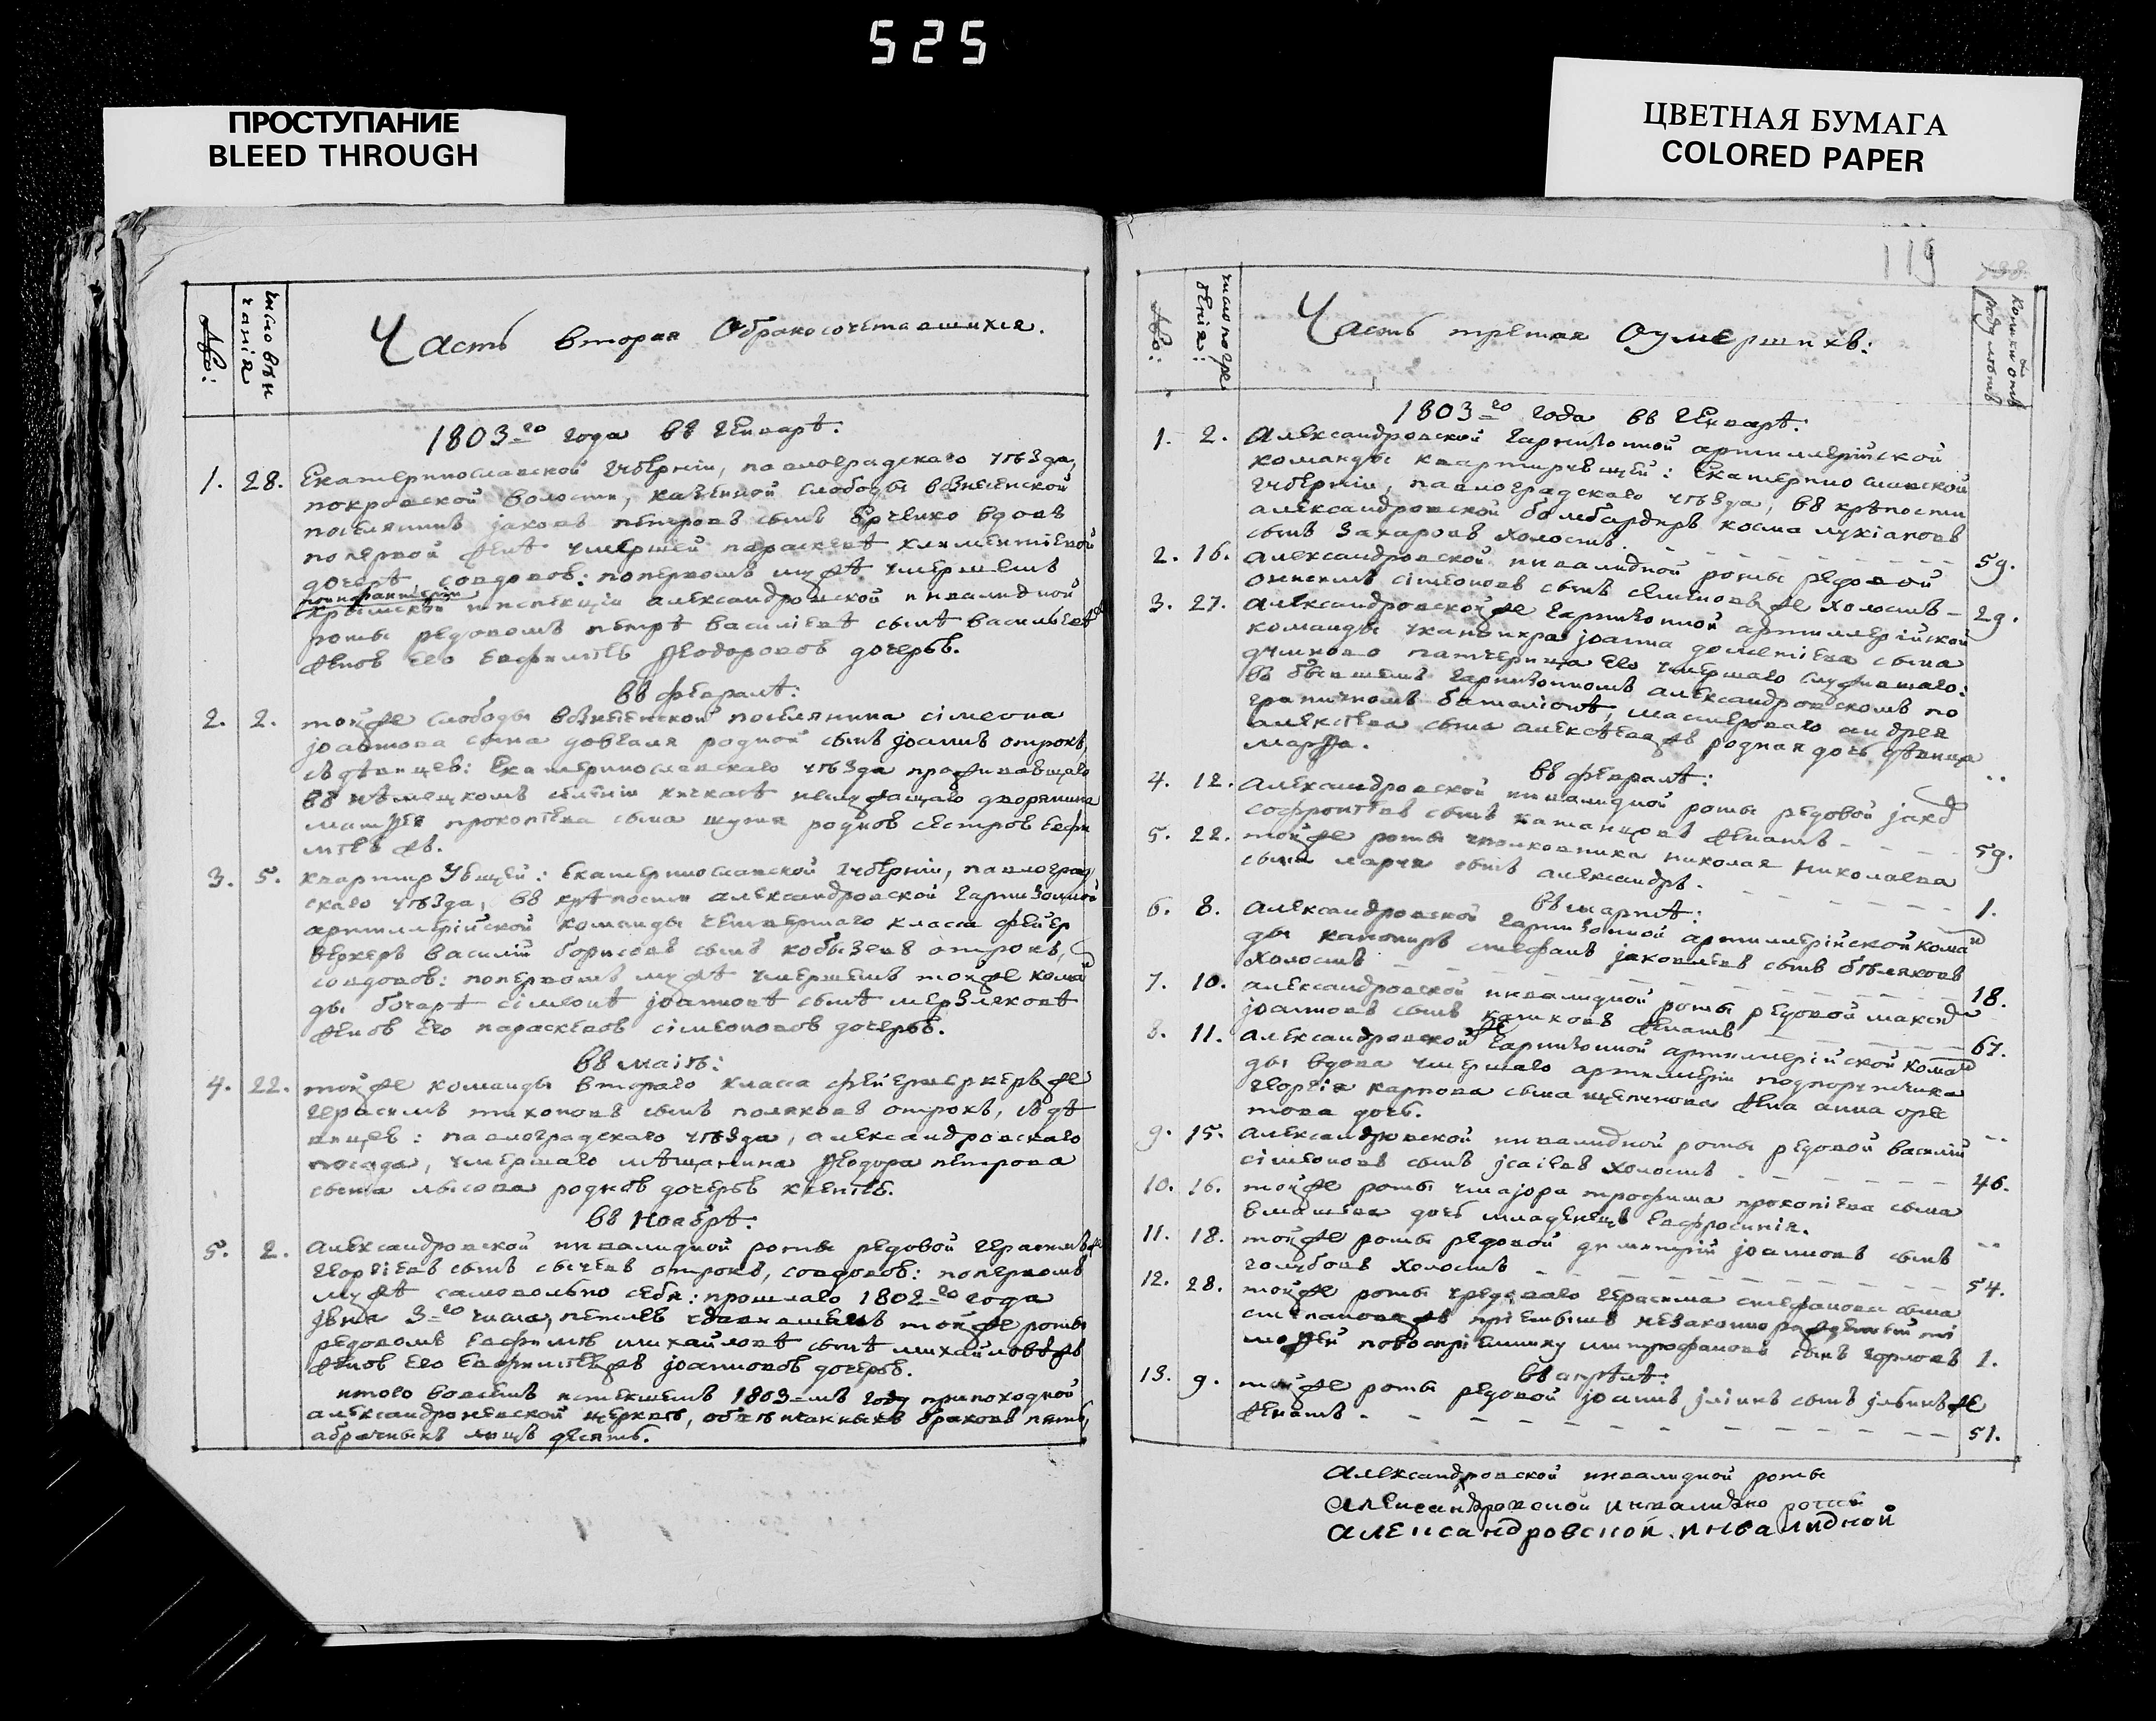 525
ПРОСТУПАНИЕ
BLEED THROUGH
ЦВЕТНАЯ БУМАГА
COLORED PAPER
119
Часть вторая Обракосочетавшихся.
1803-го года въ Генварѣ:
1. 28. Екатеринославской Губерніи, павлоградскаго уѣзда,
покровской волости, казенной слободы вознесенской
поселянинъ іаковъ петровъ сынъ вдовъ
по первой женѣ умершей параскевѣ климентіевой
дочерѣ, совдовою: попервомъ мужѣ умершемъ
крымской инспекціи александровской инвалидной
роты редовомъ петрѣ василіевѣ сынѣ васильевѣ
женою его евфиміею Ѳеодоровою дочерью.
въ февралѣ:
2. 2. тойже слободы вознесенской поселянина сімеона
іоаннова сына довгаля родной сынъ іоаннъ отрокъ,
съ дѣвицею: Екатеринославскаго уѣзда проживающаго
въ нѣмецкомъ селеніи кичкасѣ неимущаго дворянина
матѳея прокопіева сына родною сестрою евфи
міею же.
3. 5. квартирующей: Екатеринославской Губерніи, павлоград
скаго уѣзда, въ крѣпости александровской гарнизонной
артиллерійской команды четвертаго класса фейер
веркеръ василій борисовъ сынъ кобызевъ отрокъ,
совдовою: попервомъ мужѣ умершемъ тойже коман
ды сімеонѣ іоанновѣ сынѣ мерзляковѣ
женою его параскевою сімеоновою дочерью.
въ маіѣ:
4. 22. тойже команды втораго класса фейерверкеръ же
герасимъ тихоновъ сынъ поляковъ отрокъ, съ дѣ
вицею: павлоградскаго уѣзда, александровскаго
посада, умершаго мѣщанина Ѳеодора петрова
сына лысова родною дочерью ксеніею.
въ Ноябрѣ:
5. 2. Александровской инвалидной роты редовой герасимъ же
георгіевъ сынъ сычевъ отрокъ, совдовою: попервомъ
мужѣ самовольно себя: прошлаго 1802-го года
іюня 3-го числа, петлею удавившемъ тойже роты
редовомъ евфиміѣ михайловѣ сынѣ михайловѣ же
женою его евфиміею же іоанновою дочерью.
итого вовсемъ истекшемъ 1803-мъ году припоходной
александроневской церквѣ, обвенчанныхъ браковъ пять,
абрачныхъ лицъ десять.
Часть третая Оумершихъ:
1803-го года въ Генварѣ:
1. 2. Александровской гарнизонной артиллерійской
команды квартирующей: Екатеринославской
Губерніи, павлоградскаго уѣзда, въ крѣпости
александровской бомбардиръ косма лукіановъ
сынъ захаровъ холостъ
2. 16. Александровской инвалидной роты редовой 59.
онисимъ сімеоновъ сынъ семеновъ же холостъ 29.
3. 27. Александровской же гарнизонной артиллерійской
команды уканонира іоанна дометіева сына
падчерица его умершаго служившаго:
въ бывшемъ гарнизонномъ александровскомъ по
граничномъ баталіонѣ, мастероваго андрея
алексѣева сына алексѣева же родная дочь дѣвица
марѳа.
въ февралѣ:
4. 12. Александровской инвалидной роты редовой
софроніевъ сынъ женатъ 59.
5. 22. тойже роты уполковника николая николаева
сына сынъ александръ. 1.
въ мартѣ:
6. 8. Александровской гарнизонной артиллерійской коман
ды канониръ стефанъ іаковлевъ сынъ бѣляковъ
холостъ 18.
7. 10. александровской инвалидной роты редовой
іоанновъ сынъ куликовъ женатъ 67.
8. 11. Александровской же гарнизонной артиллерійской коман
ды вдова умершаго артиллеріи подпорутчика
георгія карпова сына жена анна
това дочь.
9. 15. Александровской инвалидной роты редовой василій
сімеоновъ сынъ ісаіевъ холостъ 46.
10. 16. тойже роты умаіора трофима прокопіева сына
дочь младенецъ евфросинія.
11. 18. тойже роты редовой димитрій іоанновъ сынъ
голубовъ холостъ 54.
12. 28. тойже роты уредоваго герасима стефанова сына
степанова же пріемышъ незаконно рожденный
митрофановъ сынъ 1.
въ апрѣлѣ:
13. 9. тойже роты редовой іоаннъ іліинъ сынъ ільинъ же
женатъ 51.
Александровской инвалидной роты
Александровской инвалидно роты
Александровской инвалидной